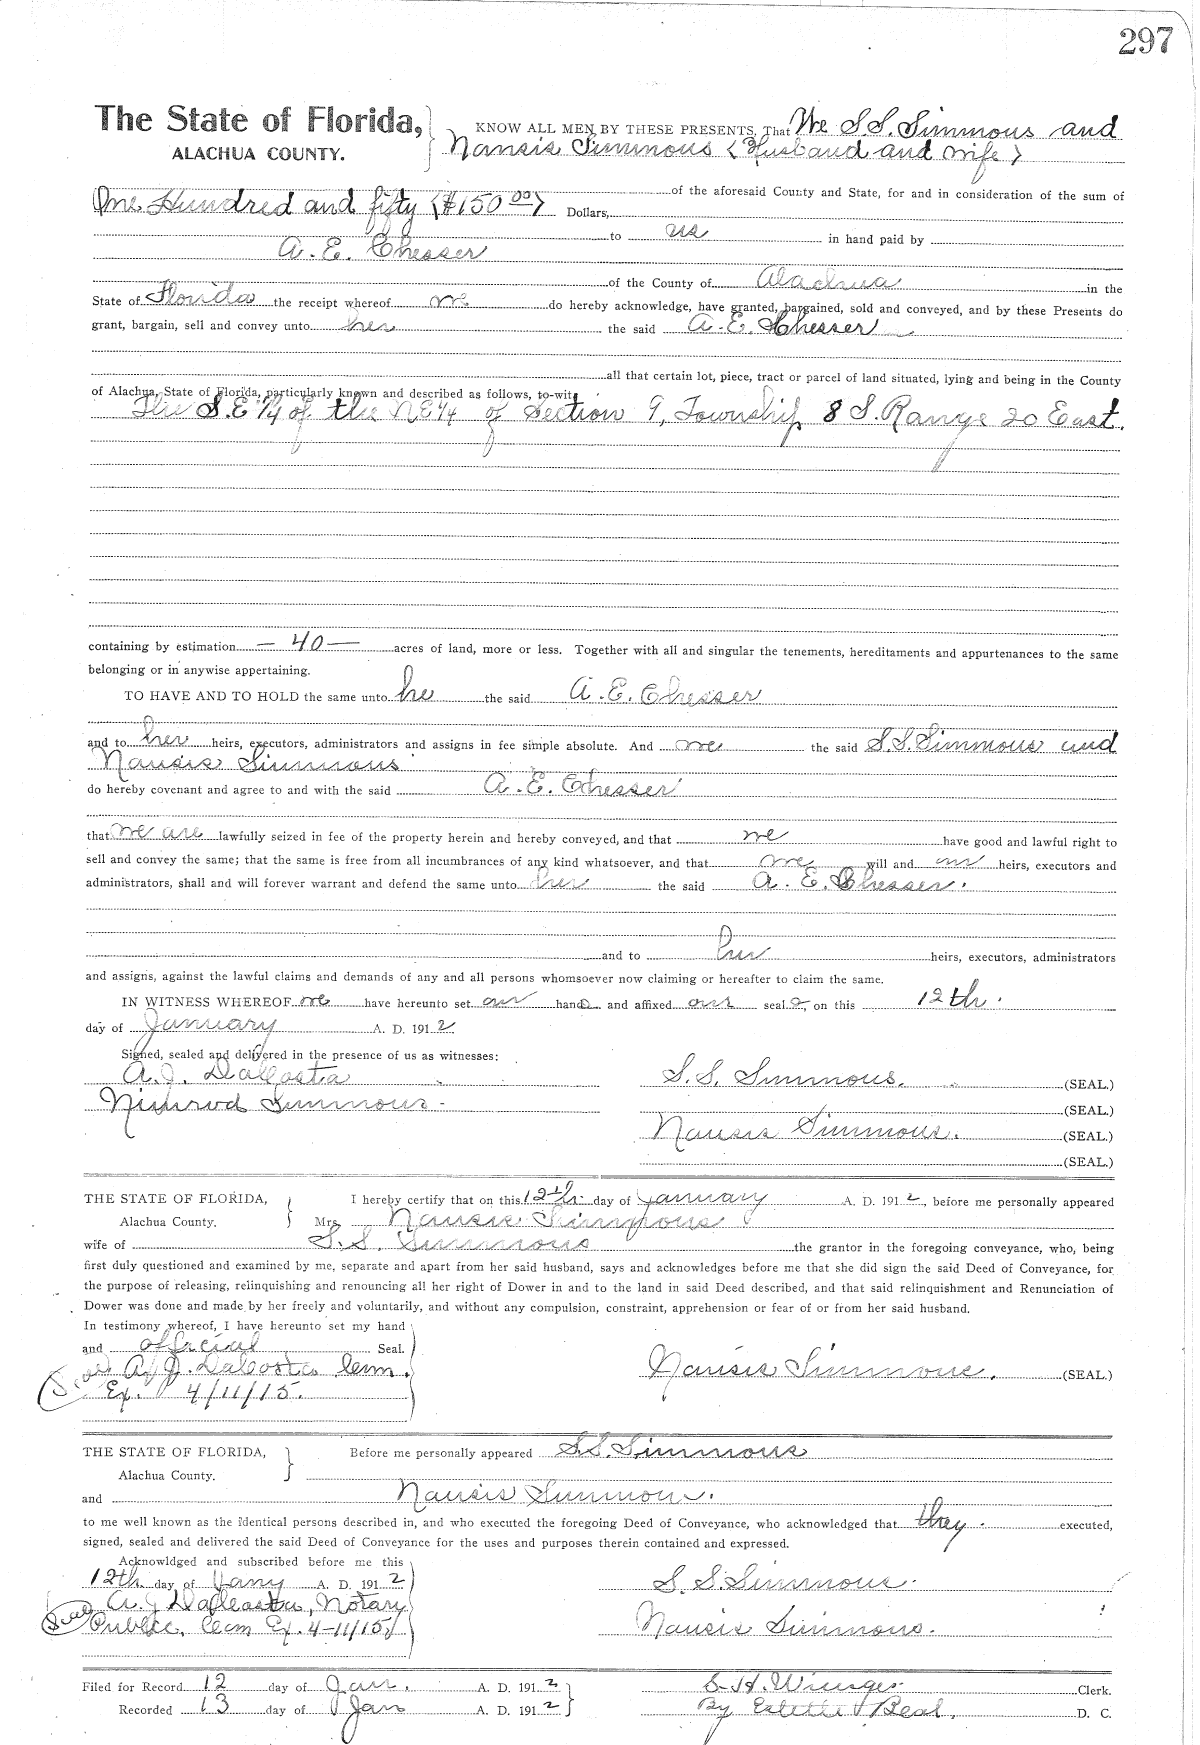 297
The State of Florida,
ALACHUA COUNTY.
KNOW ALL MEN BY THESE PRESENTS, That We S.S. Simmons and
Nansis Simmons (Husband and Wife)
of the aforesaid County and State, for and in consideration of the sum of
One Hundred and fifty ($150 00) Dollars,
to us in hand paid by
A. E. Chesser
of the County of Alachua in the
State of Florida the receipt whereof we do hereby acknowledge, have granted, bargained, sold and conveyed, and by these Presents do
grant, bargain, sell and convey unto her the said A. E. Chesser
all that certain lot, piece, tract or parcel of land situated, lying and being in the County
of Alachua, State of Florida, particularly known and described as follows, to-wit:
The S.E 1/4 of the NE 1/4 of Section 9, Township 8 S. Range 20 East.
containing by estimation — 40 — acres of land, more or less. Together with all and singular the tenements, hereditaments and appurtenances to the same
belonging or in anywise appertaining.
TO HAVE AND TO HOLD the same unto he the said A. E. Chesser
and to her heirs, executors, administrators and assigns in fee simple absolute. And we the said S.S. Simmons and
Nansis Simmons
do hereby covenant and agree to and with the said A. E. Chesser
that we are lawfully seized in fee of the property herein and hereby conveyed, and that we have good and lawful right to
sell and convey the same; that the same is free from all incumbrances of any kind whatsoever, and that we will and our heirs, executors and
administrators, shall and will forever warrant and defend the same unto her the said A. E. Chesser.
and to her heirs, executors, administrators
and assigns, against the lawful claims and demands of any and all persons whomsoever now claiming or hereafter to claim the same.
IN WITNESS WHEREOF we have hereunto set our hands and affixed our seals on this 12th.
day of January A. D. 1912
Signed, sealed and delivered in the presence of us as witnesses:
A. J. DaCosta
S. S. Simmons. (SEAL.)
Nimrod Simmons
(SEAL.)
Nansis Simmons. (SEAL.)
(SEAL.)
THE STATE OF FLORIDA,
Alachua County.
I hereby certify that on this 12th day of January A. D. 1912, before me personally appeared
Mrs. Nansis Simmons
wife of S. S. Simmons the grantor in the foregoing conveyance, who, being
first duly questioned and examined by me, separate and apart from her said husband, says and acknowledges before me that she did sign the said Deed of Conveyance, for
the purpose of releasing, relinquishing and renouncing all her right of Dower in and to the land in said Deed described, and that said relinquishment and Renunciation of
Dower was done and made by her freely and voluntarily, and without any compulsion, constraint, apprehension or fear of or from her said husband.
In testimony whereof, I have hereunto set my hand
and official Seal.
Seal A. J. DaCosta Com.
Ex. 4/11/15.
Nansis Simmons. (SEAL.)
THE STATE OF FLORIDA,
Alachua County.
Before me personally appeared S.S. Simmons
and Nansis Simmons.
to me well known as the identical persons described in, and who executed the foregoing Deed of Conveyance, who acknowledged that they executed,
signed, sealed and delivered the said Deed of Conveyance for the uses and purposes therein contained and expressed.
Acknowldged and subscribed before me this
12th day of Jany A. D. 1912
S. S. Simmons.
Seal A. J DaCosta, Notary
Public, Com Ex. 4-11/15
Nansis Simmons.
Filed for Record 12 day of Jan. A. D. 1912
Recorded 13 day of Jan A. D. 1912
S. H. Wienges Clerk.
By Estelle Beal. D. C.